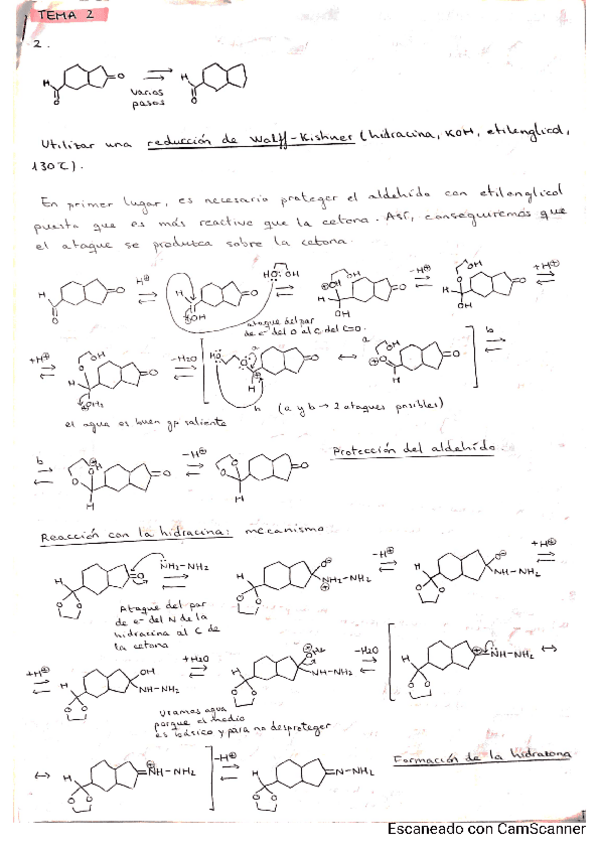 TEMA 2
2.
H
O
O
varios
pasos
H
O
Utilizar una reducción de Wolff-Kishner (hidracina, KOH, etilenglicol,
130ºC).
En primer lugar, es necesario proteger el aldehído con etilenglicol
puesto que es más reactivo que la cetona. Así, conseguiremos que
el ataque se produzca sobre la cetona.
H⊕
HO OH
-H⊕
+H⊕
ataque del par
de e⁻ del O al C del C=O.
+H⊕
-H2O
a
b
(a y b → 2 ataques posibles)
el agua es buen gp saliente
b
-H⊕
Protección del aldehído.
Reacción con la hidracina: mecanismo
NH2-NH2
-H⊕
NH2-NH2
+H⊕
NH-NH2
Ataque del par
de e⁻ del N de la
hidracina al C de
la cetona
+H⊕
OH
NH-NH2
+H2O
NH-NH2
-H2O
NH-NH2
Usamos agua
porque el medio
es básico y para no desproteger
NH-NH2
-H⊕
N-NH2
Formación de la hidrazona
Escaneado con CamScanner